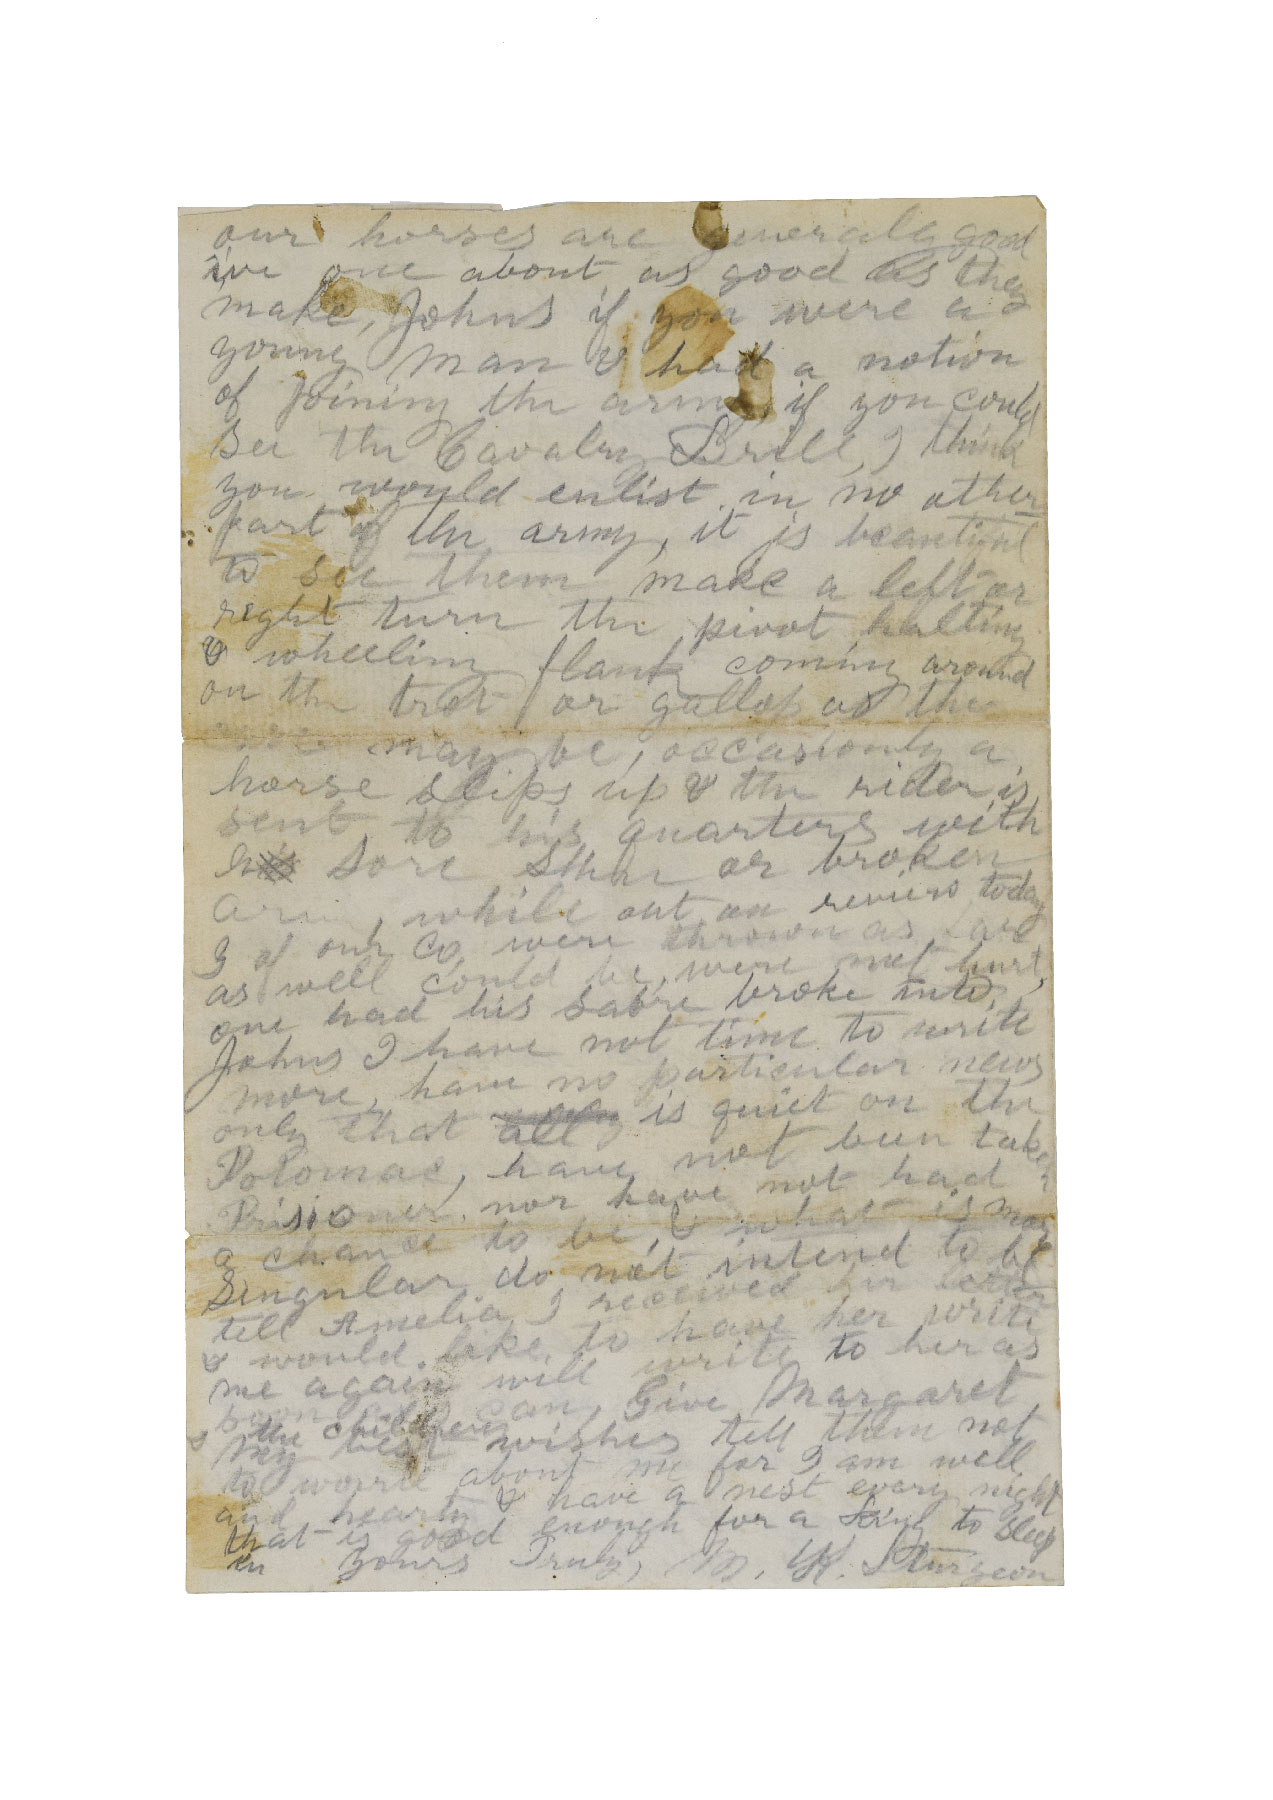 our horses are generaly good
ive one about as good as they
make, Johns if you were a
young man & had a notion
of joining the army, if you could
see the Cavalry Drill, I think
you would enlist in no other
part of the army, it is beautiful
to see them make a left or
right turn the pivot halting
& wheeling flank coming around
on the trot or gallop as the
case may be, occasionly a
horse slips up & the rider is
sent to his quarters with
a sore Shin or broken
arm, while out on review today
of our Co. were thrown as
as well could be, were not hurt,
one had his sabre broke into,
Johns I have not time to write
more, have no particular news
only that all is quiet on the
Potomac, have not been taken
Prisioner, nor have not had
a chance to be, & what is more
Singular do not intend to be
tell Amelia I received her letter
& would like to have her write
me again will write to her as
soon as I can, Give Margaret
& the children
My best wishes tell them not
to worrie about me for I am well
and hearty & have a nest every night
that is good enough for a King to sleep
in Yours Truly, M. K. Sturgeon